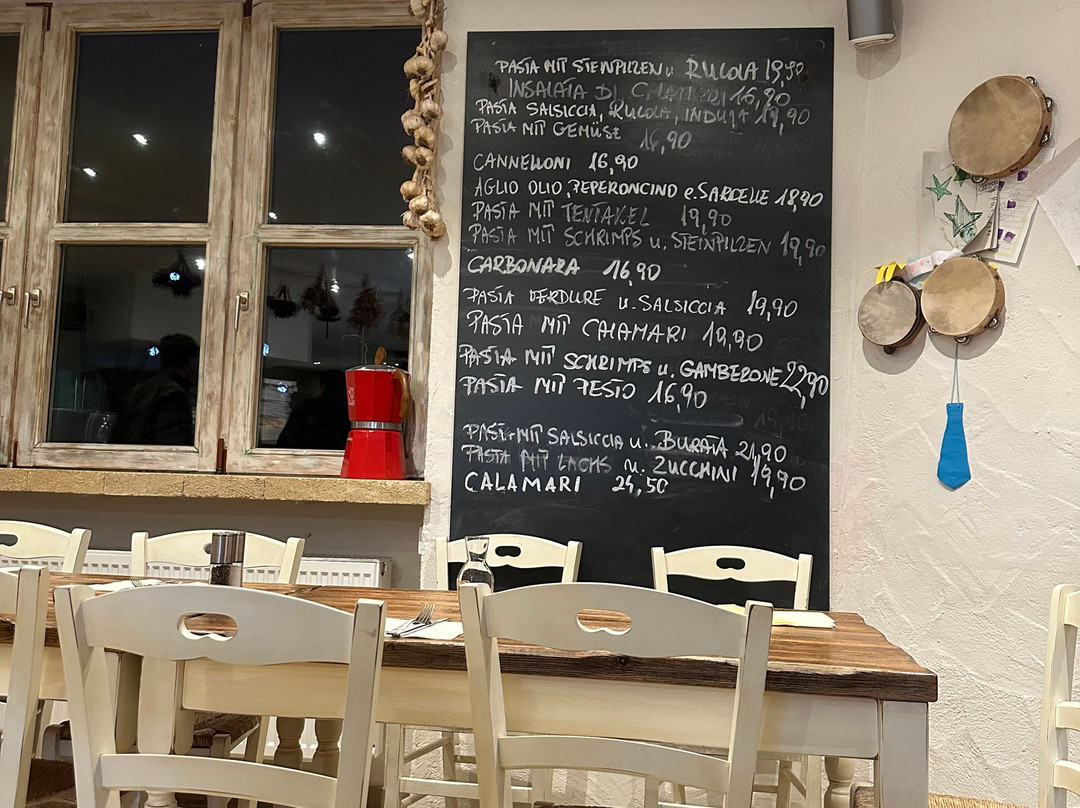 PASTA MIT STEINPILZEN u. RUCOLA 19,90
INSALATA DI CALAMARI 16,90
PASTA SALSICCIA, RUCOLA, INDUJA 19,90
PASTA MIT GEMÜSE 16,90
CANNELLONI 16,90
AGLIO OLIO, PEPERONCINO e. SARDELLE 18,90
PASTA MIT TENTAKEL 19,90
PASTA MIT SCHRIMPS u. STEINPILZEN 19,90
CARBONARA 16,90
PASTA VERDURE u. SALSICCIA 19,90
PASTA MIT CALAMARI 19,90
PASTA MIT SCHRIMPS u. GAMBERONE 22,90
PASTA MIT PESTO 16,90
PASTA MIT SALSICCIA u. BURATA 21,90
PASTA MIT LACHS u. ZUCCHINI 19,90
CALAMARI 24,50